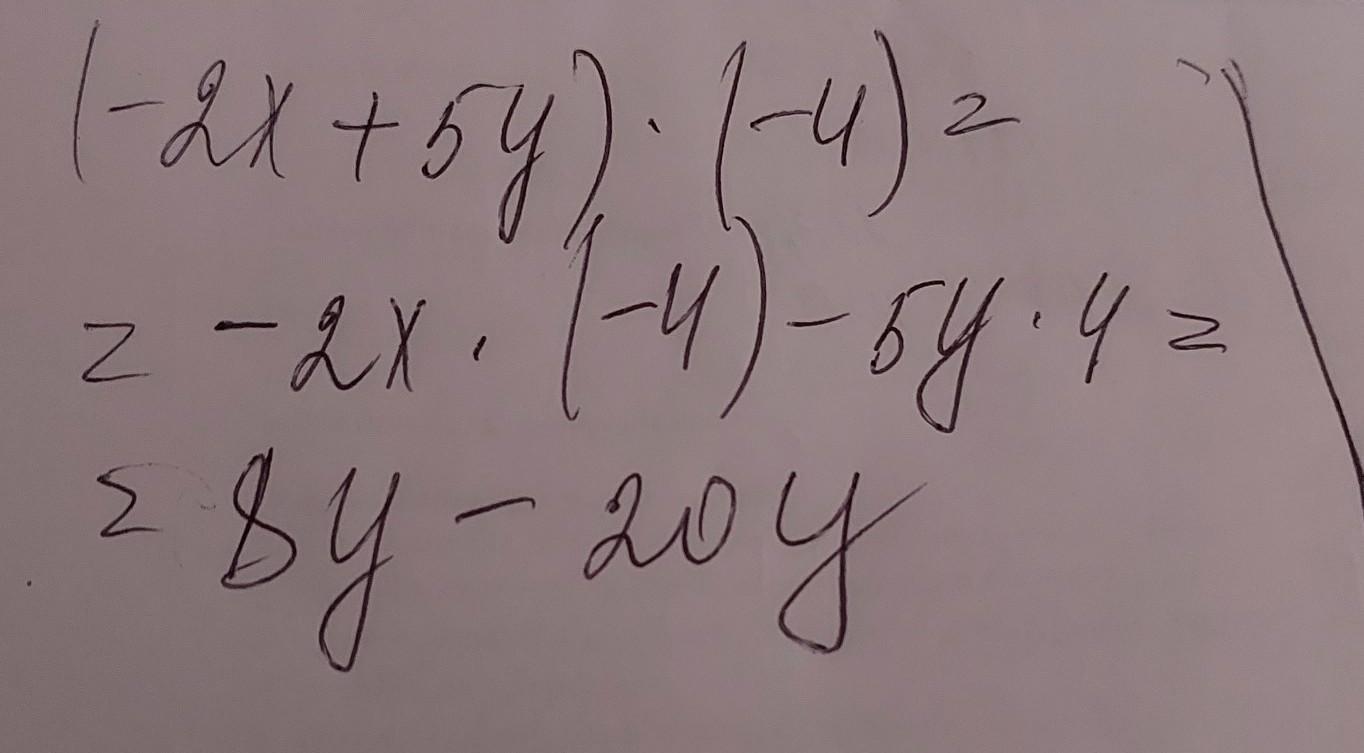 (-2x + 5y) · (-4) =
= -2x · (-4) - 5y · 4 =
= 8y - 20y